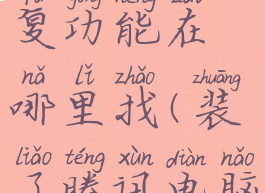 复功能在
nǎ lǐ zhǎo zhuāng
哪里找(装
liǎo téng xùn diàn nǎo
了腾讯电脑